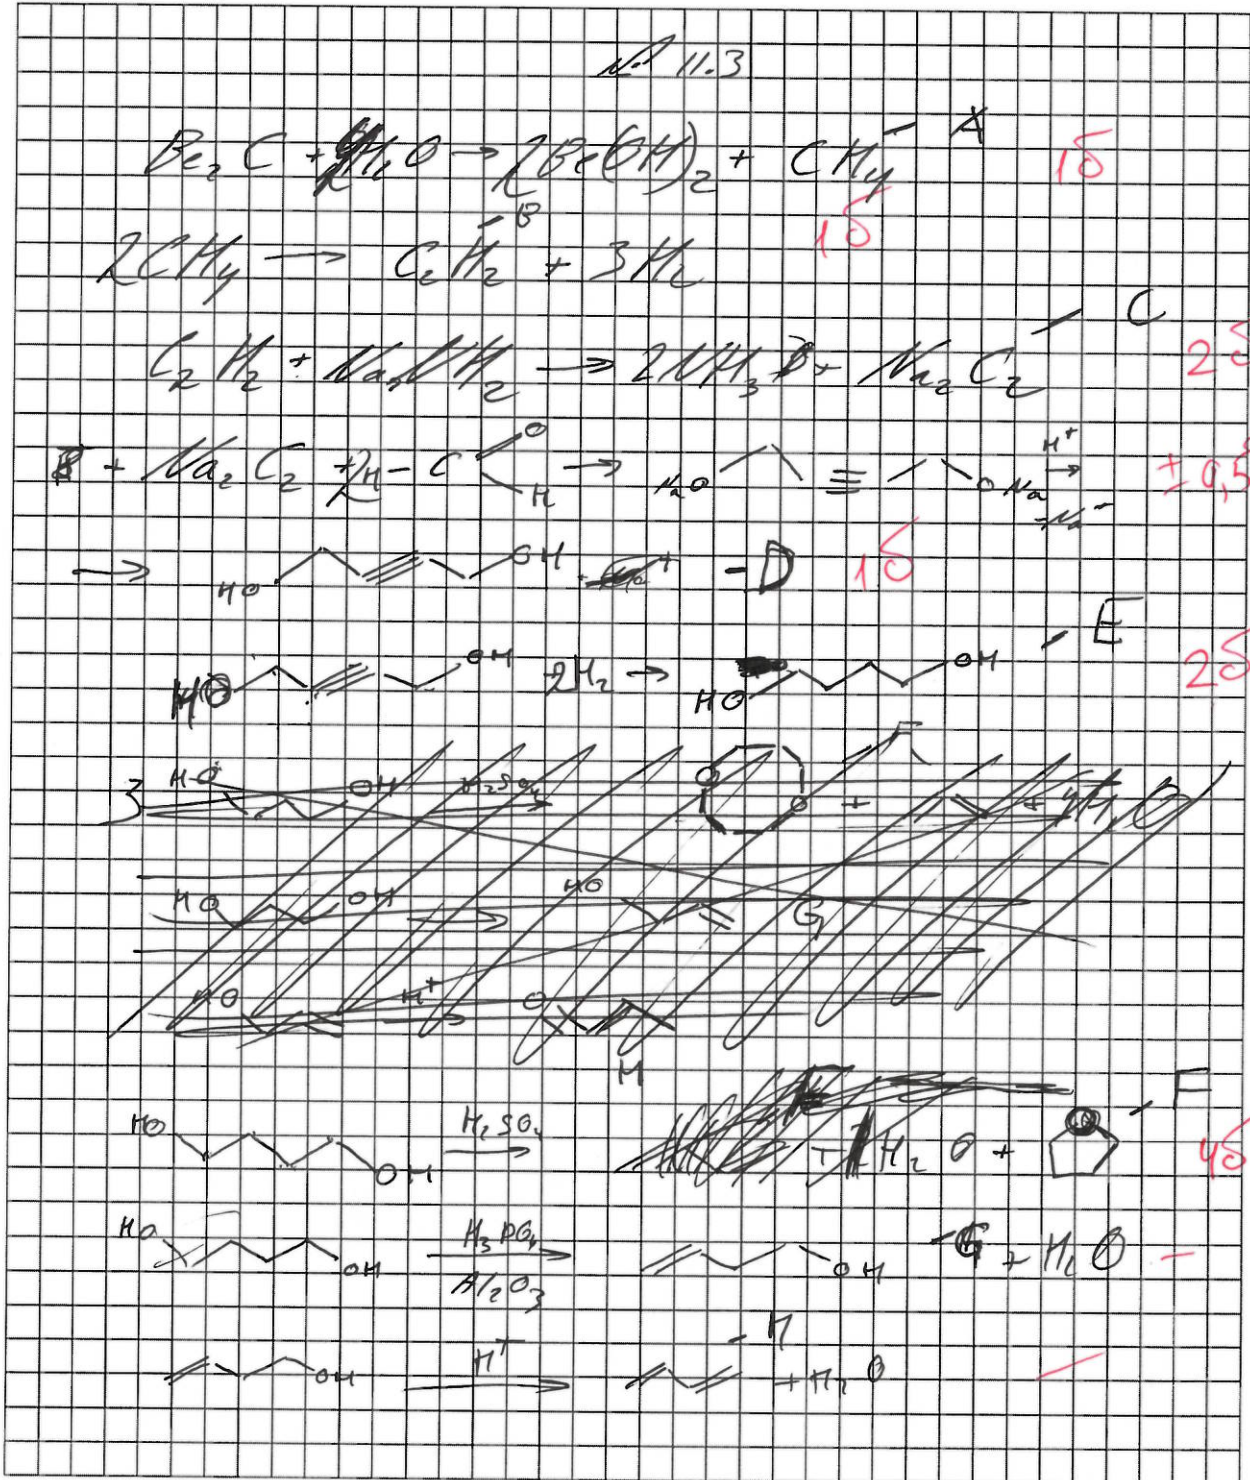 № 11.3
Be₂C + H₂O → 2Be(OH)₂ + CH₄ - A 1б
2CH₄ → C₂H₂ - B + 3H₂ 1б
C₂H₂ + NaNH₂ → 2NH₃ + Na₂C₂ - C 2б
+ Na₂C₂ + 2H-C O H → NaO ≡ ONa H⁺ → ± 0,5
→ HO OH - D 1б
HO OH 2H₂ → HO OH - E 2б
3 HO OH H₂SO₄ → O O + + 4H₂O F
HO OH → HO G
HO H⁺ → O
H
HO OH H₂SO₄ → + H₂O + O - F 4б
HO OH H₃PO₄ Al₂O₃ → OH - G + H₂O -
OH H⁺ → - H + H₂O